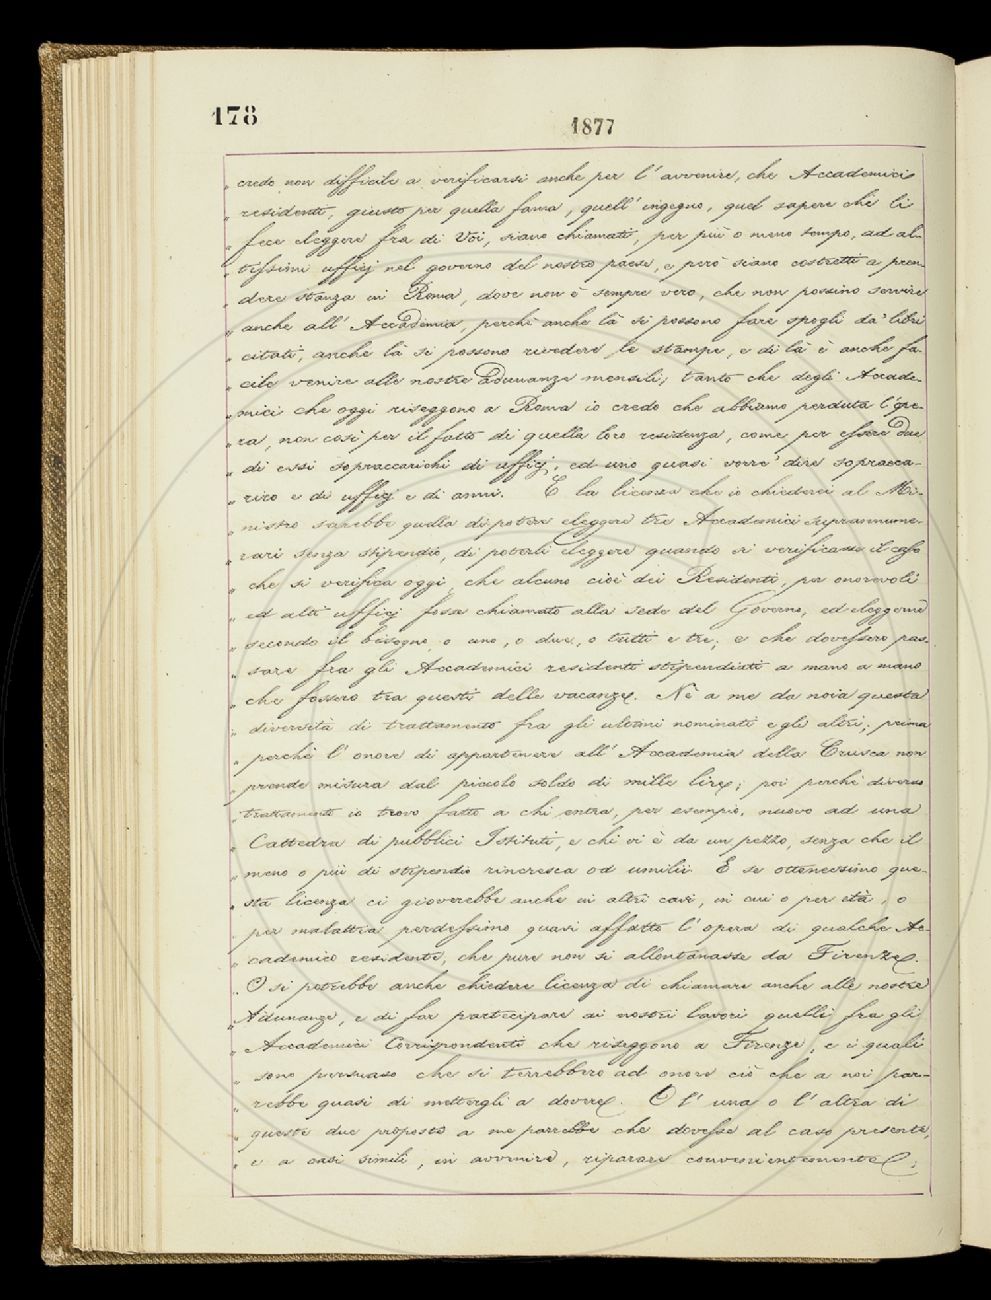 178
1877
„ credo non difficile a verificarsi anche per l' avvenire, che Accademici
„ residenti, giusto per quella fama, quell' ingegno, quel sapere che li
„ fece eleggere fra di Voi, siano chiamati, per più o meno tempo, ad al-
„ tissimi ufficj nel governo del nostro paese, e però siano costretti a pren-
„ dere stanza in Roma, dove non è sempre vero, che non possino servire
„ anche all' Accademia, perchè anche là si possono fare spogli da' libri
„ citati, anche là si possono rivedere le stampe, e di là è anche fa-
„ cile venire alle nostre Adunanze mensili; tanto che degli Accade-
„ mici che oggi riseggono a Roma io credo che abbiamo perduta l' ope-
„ ra, non così per il fatto di quella loro residenza, come per essere due
„ di essi sopraccarichi di ufficj, ed uno quasi vorre' dire sopracca-
„ rico e di ufficj e di anni. E la licenza che io chiederei al Mi-
„ nistro sarebbe quella di potere eleggere tre Accademici soprannume-
„ rari senza stipendio, di poterli eleggere quando si verificasse il caso
„ che si verifica oggi, che alcuno cioè dei Residenti, per onorevoli
„ ed alti ufficj fosse chiamato alla sede del Governo, ed eleggerne
„ secondo il bisogno, o uno, o due, o tutti e tre; e che dovessero pas-
„ sare fra gli Accademici residenti stipendiati a mano a mano
„ che fossero tra questi delle vacanze. Nè a me da noia questa
„ diversità di trattamento fra gli ultimi nominati e gli altri; prima
„ perchè l' onore di appartenere all' Accademia della Crusca non
„ prende misura dal piccolo soldo di mille lire; poi perchè diverso
„ trattamento io trovo fatto a chi entra, per esempio, nuovo ad una
„ Cattedra di pubblici Istituti, e chi vi è da un pezzo, senza che il
„ meno o più di stipendio rincresca od umilii. E se ottenessimo que-
„ sta licenza ci gioverebbe anche in altri casi, in cui o per età, o
„ per malattia perdessimo quasi affatto l' opera di qualche Ac-
„ cademico residente, che pure non si allontanasse da Firenze.
„ O si potrebbe anche chiedere licenza di chiamare anche alle nostre
„ Adunanze, e di far partecipare ai nostri lavori quelli fra gli
„ Accademici Corrispondenti che riseggono a Firenze, e i quali
„ sono persuaso che si terrebbero ad onore ciò che a noi par-
„ rebbe quasi di mettergli a dovere. O l' una o l' altra di
„ queste due proposte a me parrebbe che dovesse al caso presente,
„ e a casi simili, in avvenire, riparare convenientemente;